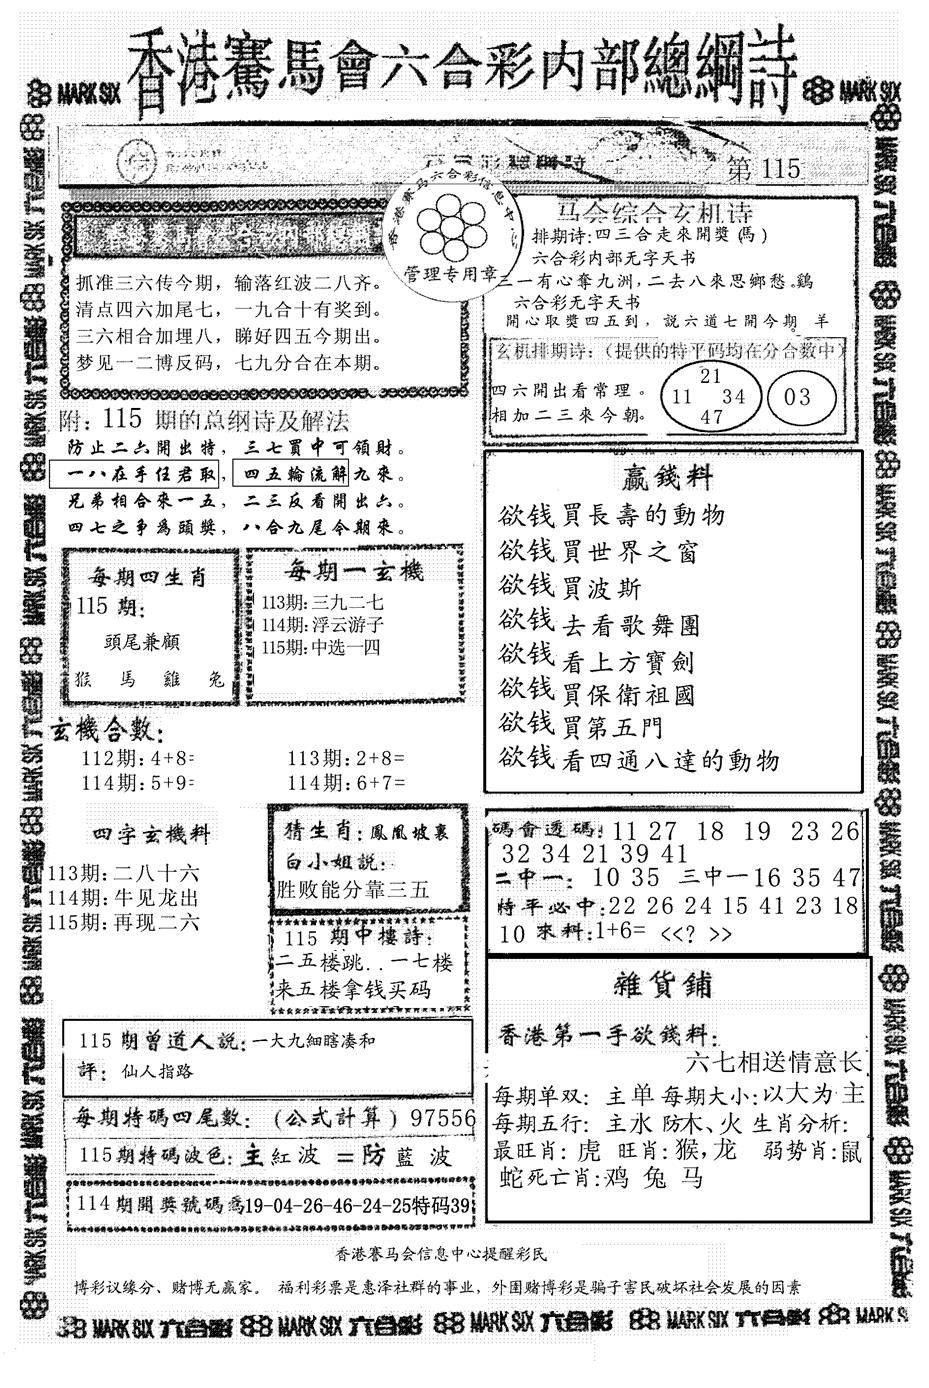 香港賽馬會六合彩内部總綱詩
MARK SIX
MARK SIX
第 115
香港赛马六合彩信息中
管理专用章
抓准三六传今期，输落红波二八齐。
清点四六加尾七，一九合十有奖到。
三六相合加埋八，睇好四五今期出。
梦见一二博反码，七九分合在本期。
马会综合玄机诗
排期诗:四三合走來開獎(馬)
六合彩内部无字天书
三一有心奪九洲,二去八來思鄉愁。鷄
六合彩无字天书
開心取獎四五到，説六道七開今期。羊
玄机排期诗:（提供的特平码均在分合数中）
四六開出看常理。
相加二三來今朝。
21
11 34
47
03
附: 115 期的总纲诗及解法
防止二六開出特，三七買中可領財。
一八在手任君取，四五輪流解九來。
兄弟相合來一五，二三反看開出六。
四七之爭為頭獎，八合九尾今期來。
每期四生肖
115 期:
頭尾兼顧
猴 馬 雞 兔
每期一玄機
113期:三九二七
114期:浮云游子
115期:中选一四
玄機合數:
112期:4+8= 113期:2+8=
114期:5+9= 114期:6+7=
四字玄機料
113期:二八十六
114期:牛见龙出
115期:再现二六
猜生肖:鳳凰坡裏
白小姐説:
胜败能分靠三五
115 期中樓詩:
二五楼跳..一七楼
来五楼拿钱买码
115 期曾道人説:一大九細瞎凑和
評: 仙人指路
每期特碼四尾數:（公式計算）97556
115期特碼波色:主紅波 =防藍波
114期開獎號碼為19-04-26-46-24-25特码39
赢錢料
欲钱買長壽的動物
欲钱買世界之窗
欲钱買波斯
欲钱去看歌舞團
欲钱看上方寶劍
欲钱買保衛祖國
欲钱買第五門
欲钱看四通八達的動物
碼會透碼:11 27 18 19 23 26
32 34 21 39 41
二中一: 10 35 三中一16 35 47
特平必中:22 26 24 15 41 23 18
10 來料:1+6= <<? >>
雜貨鋪
香港第一手欲錢料:
六七相送情意长
每期单双: 主单 每期大小:以大为主
每期五行: 主水 防木、火 生肖分析:
最旺肖: 虎 旺肖:猴,龙 弱势肖:鼠
蛇死亡肖:鸡 兔 马
香港赛马会信息中心提醒彩民
博彩议缘分、赌博无赢家。 福利彩票是惠泽社群的事业，外围赌博彩是骗子害民破坏社会发展的因素
MARK SIX 六合彩 MARK SIX 六合彩 MARK SIX 六合彩 MARK SIX 六合彩 MARK SIX